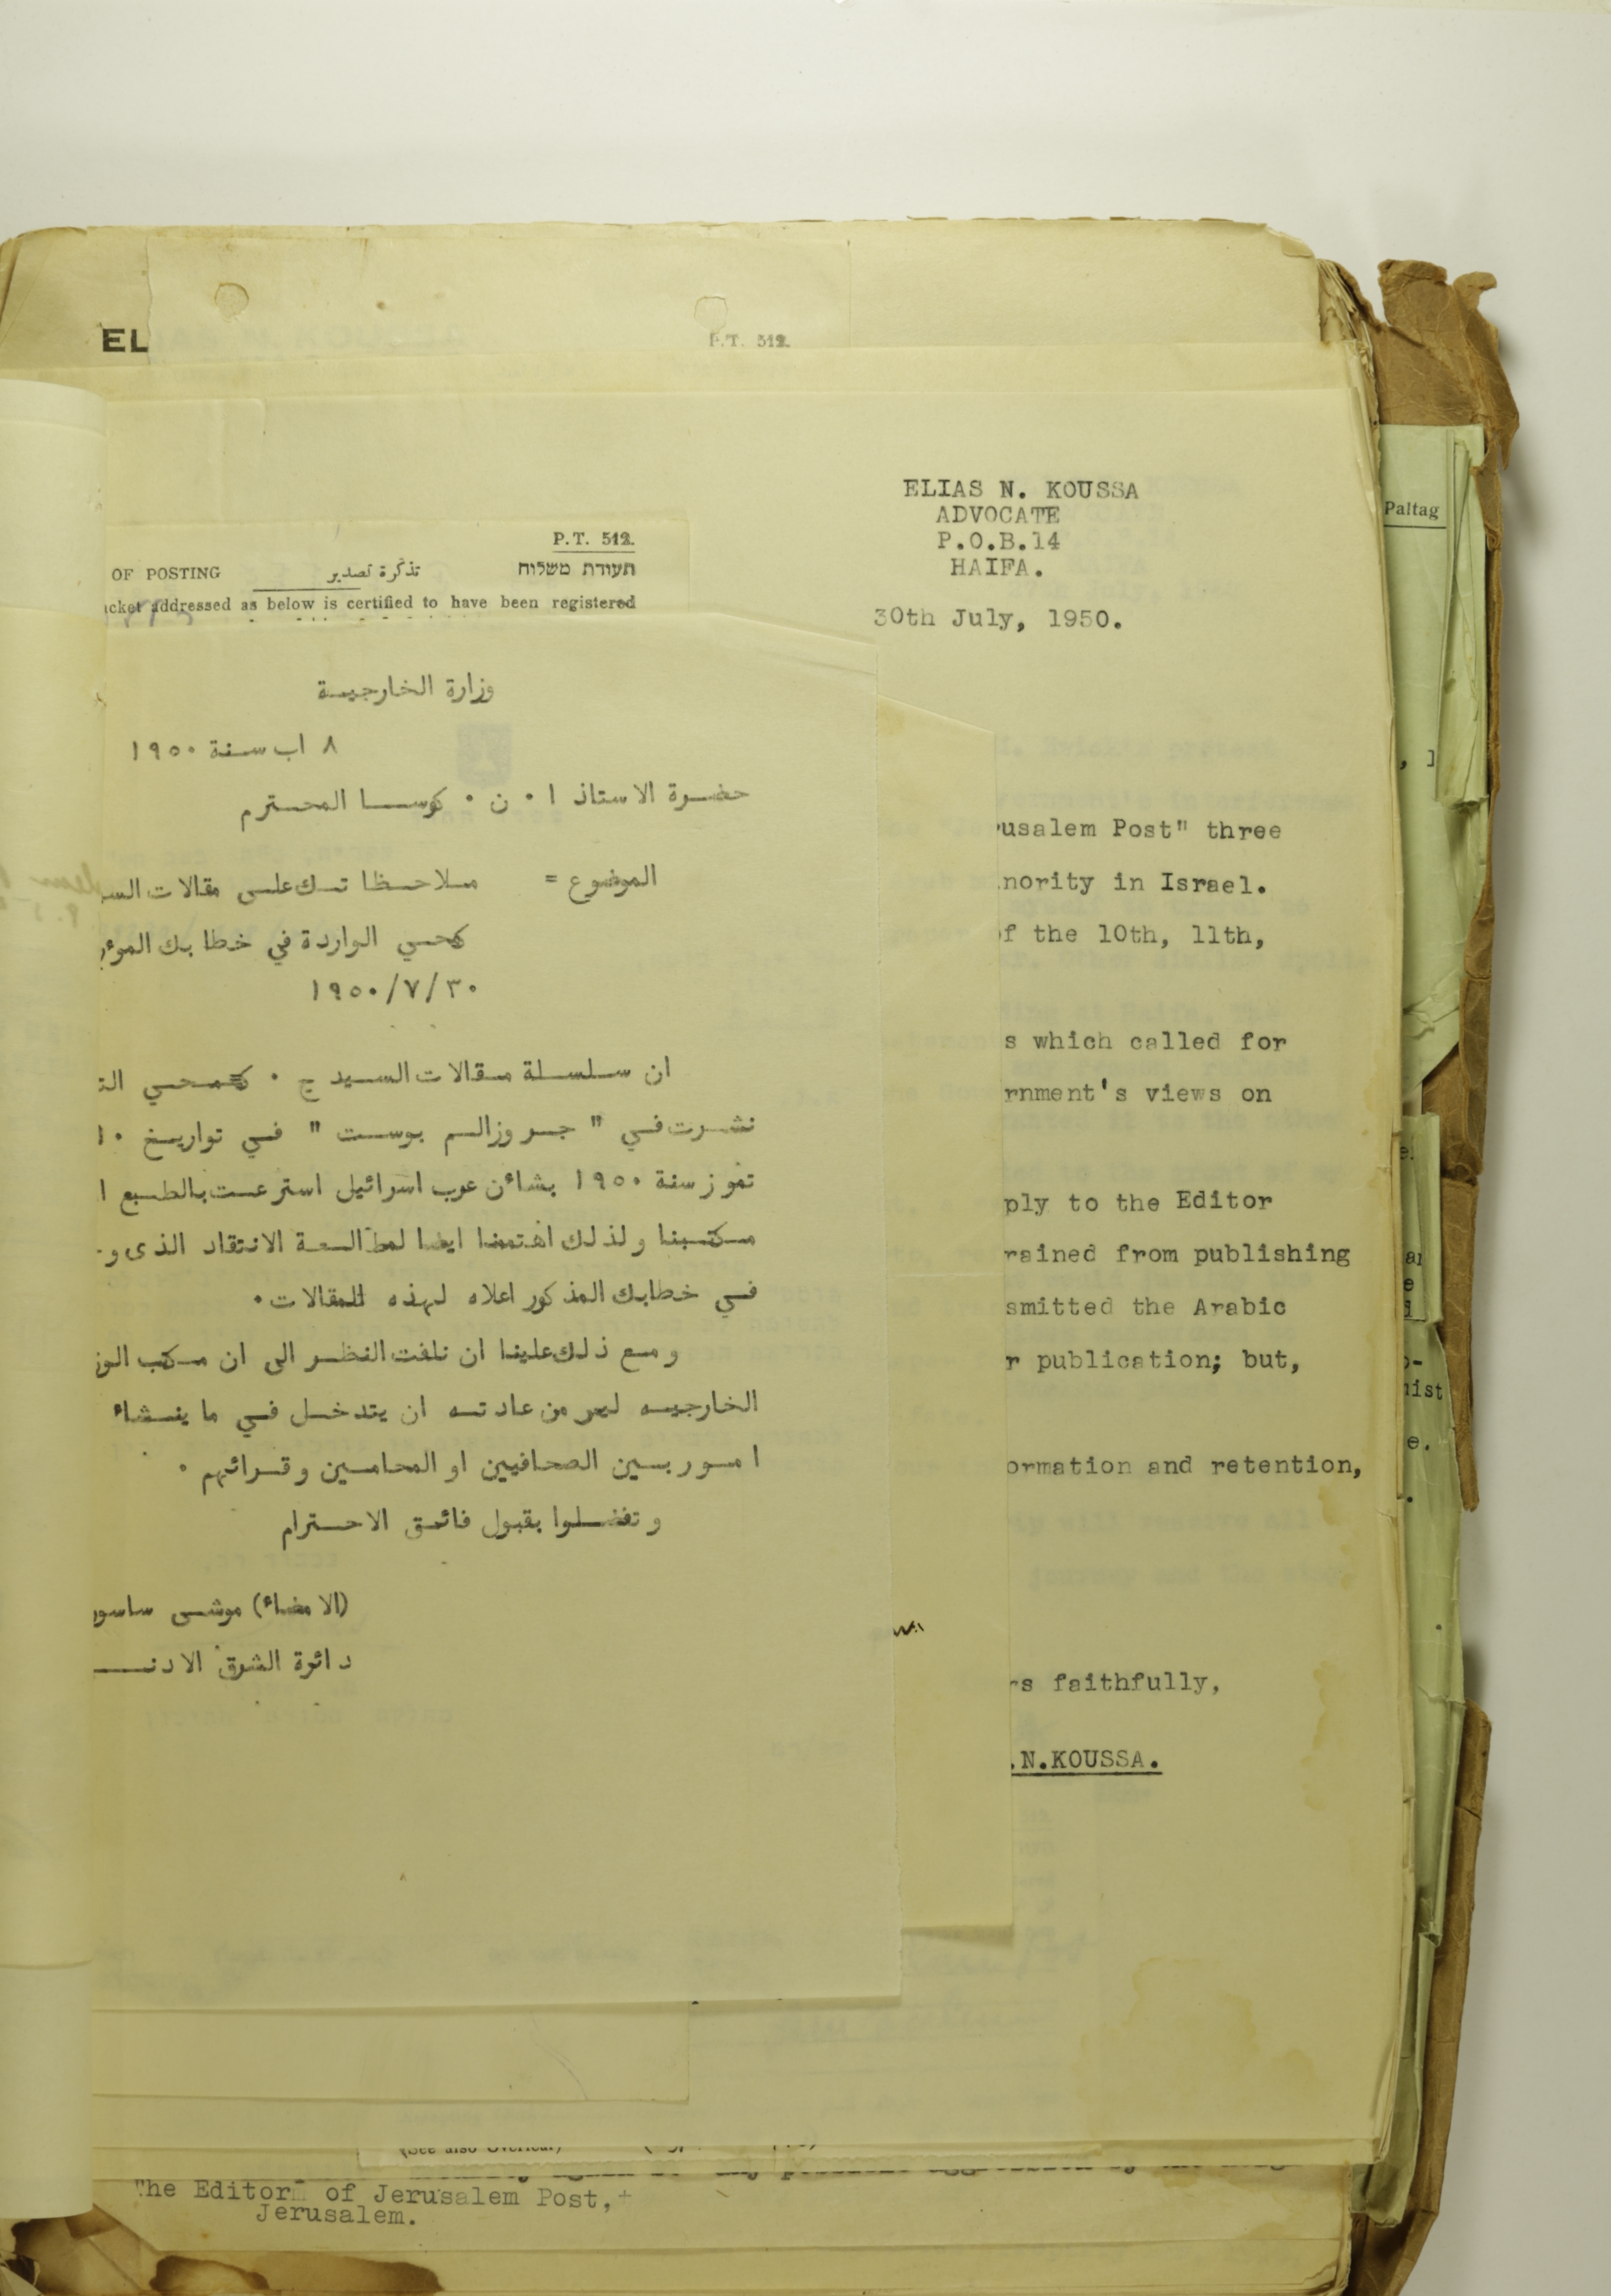 EL
P.T. 512.
ELIAS N. KOUSSA
ADVOCATE
P.O.B.14
HAIFA.
30th July, 1950.
Paltag
P.T. 512.
OF POSTING تذكرة تصدير תעודת משלוח
addressed as below is certified to have been registered
وزارة الخارجيـة
٨ اب سنة ١٩٥٠
حضرة الاستاذ ا ٠ ن ٠ كوسا المحترم
الموضوع = ملاحظا تك على مقالات
الواردة في خطابك
١٩٥٠/٧/٣٠
ان سلسلة مقالات السيد ج ٠
نشرت في " جروزالم بوست " في تواريخ ١٠
تموز سنة ١٩٥٠ بشائن عرب اسرائيل استرعت بالطبع
مكتبنا ولذلك اهتممنا ايضا لمطالعة الانتقاد الذى
في خطابك المذكور اعلاه لهذه المقالات ٠
ومع ذلك علينا ان نلفت النظر الى ان مكتب
الخارجيه ليس من عادته ان يتدخل في ما ينشاء
امور بين الصحافيين او المحامين وقرائهم ٠
وتفضلوا بقبول فائق الاحترام
(الامضاء) موشى
دائرة الشرق
usalem Post" three
nority in Israel.
of the 10th, 11th,
s which called for
rnment's views on
ply to the Editor
rained from publishing
smitted the Arabic
r publication; but,
ormation and retention,
rs faithfully,
.N.KOUSSA.
The Editor of Jerusalem Post,
Jerusalem.